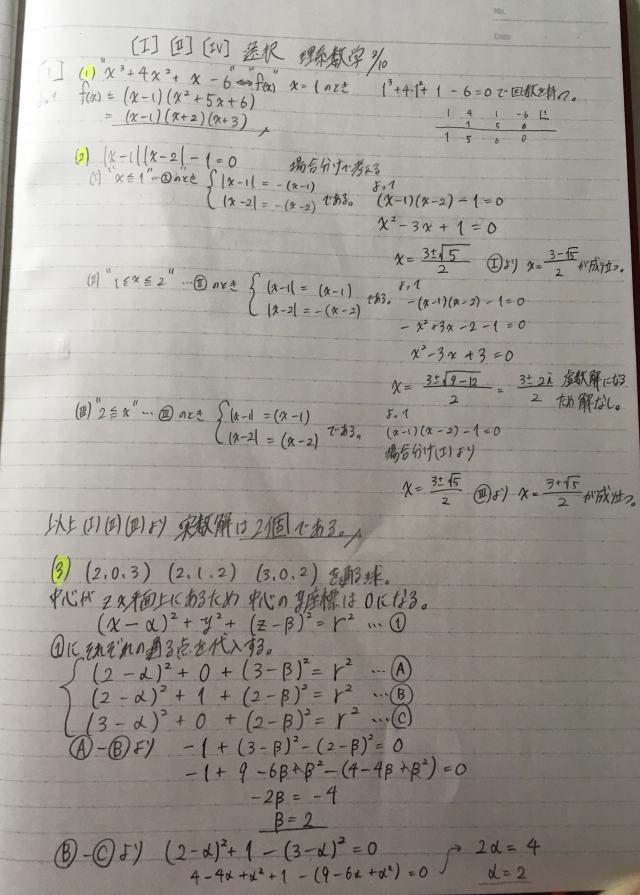 No.
Date
[I] [II] [IV] 選択 理系数学 2/10
[1] (1) "x³+4x²+x-6" ⇔ "f(x)" x=1のとき 1³+4・1²+1-6=0で因数を持つ。
よって f(x)=(x-1)(x²+5x+6)
=(x-1)(x+2)(x+3)
1 4 1 -6 |1
1 5 6
1 5 6 0
(2) |x-1||x-2|-1=0 場合分けで考える
(I) "x≦1"…Ⓘのとき { |x-1|=-(x-1) |x-2|=-(x-2) である。 よって (x-1)(x-2)-1=0
x²-3x+1=0
x=(3±√5)/2 Ⓘより x=(3-√5)/2 が成り立つ。
(II) "1≦x≦2"…Ⓘ︎Ⓘのとき { |x-1|=(x-1) |x-2|=-(x-2) である。 よって -(x-1)(x-2)-1=0
-x²+3x-2-1=0
x²-3x+3=0
x=(3±√9-12)/2=(3±2i)/2 虚数解になるため解なし。
(III) "2≦x"…(III)のとき { |x-1|=(x-1) |x-2|=(x-2) である。 よって (x-1)(x-2)-1=0
場合分け(I)より
x=(3±√5)/2 (III)より x=(3+√5)/2 が成り立つ。
以上(I)(II)(III)より 実数解は2個である。
(3) (2,0,3) (2,1,2) (3,0,2) を通る球。
中心がzx平面上にあるため中心のy座標は0になる。
(x-α)²+y²+(z-β)²=r² …①
①にそれぞれの通る点を代入する。
{ (2-α)²+0+(3-β)²=r² …Ⓐ
(2-α)²+1+(2-β)²=r² …Ⓑ
(3-α)²+0+(2-β)²=r² …Ⓒ
Ⓐ-Ⓑより -1+(3-β)²-(2-β)²=0
-1+9-6β+β²-(4-4β+β²)=0
-2β=-4
β=2
Ⓑ-Ⓒより (2-α)²+1-(3-α)²=0
4-4α+α²+1-(9-6α+α²)=0
2α=4
α=2